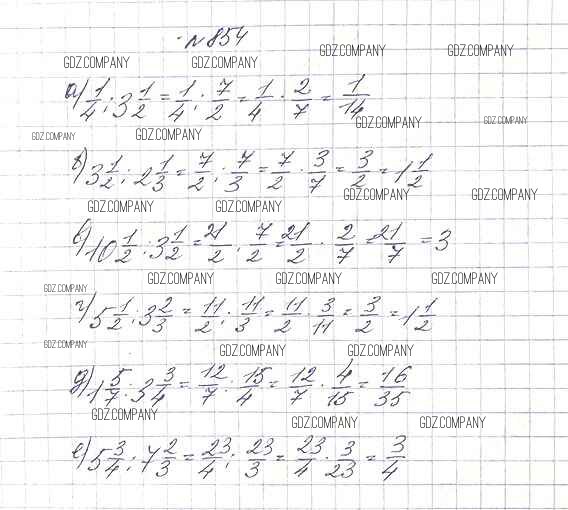 №854
GDZ.COMPANY GDZ.COMPANY GDZ.COMPANY GDZ.COMPANY
а) 1/4 : 3 1/2 = 1/4 : 7/2 = 1/4 · 2/7 = 1/14
GDZ.COMPANY GDZ.COMPANY GDZ.COMPANY GDZ.COMPANY
б) 3 1/2 : 2 1/3 = 7/2 : 7/3 = 7/2 · 3/7 = 3/2 = 1 1/2
GDZ.COMPANY GDZ.COMPANY GDZ.COMPANY GDZ.COMPANY
в) 10 1/2 : 3 1/2 = 21/2 : 7/2 = 21/2 · 2/7 = 21/7 = 3
GDZ.COMPANY GDZ.COMPANY GDZ.COMPANY GDZ.COMPANY
г) 5 1/2 : 3 2/3 = 11/2 : 11/3 = 11/2 · 3/11 = 3/2 = 1 1/2
GDZ.COMPANY GDZ.COMPANY GDZ.COMPANY
д) 1 5/7 : 3 3/4 = 12/7 : 15/4 = 12/7 · 4/15 = 16/35
GDZ.COMPANY GDZ.COMPANY GDZ.COMPANY
е) 5 3/4 : 7 2/3 = 23/4 : 23/3 = 23/4 · 3/23 = 3/4